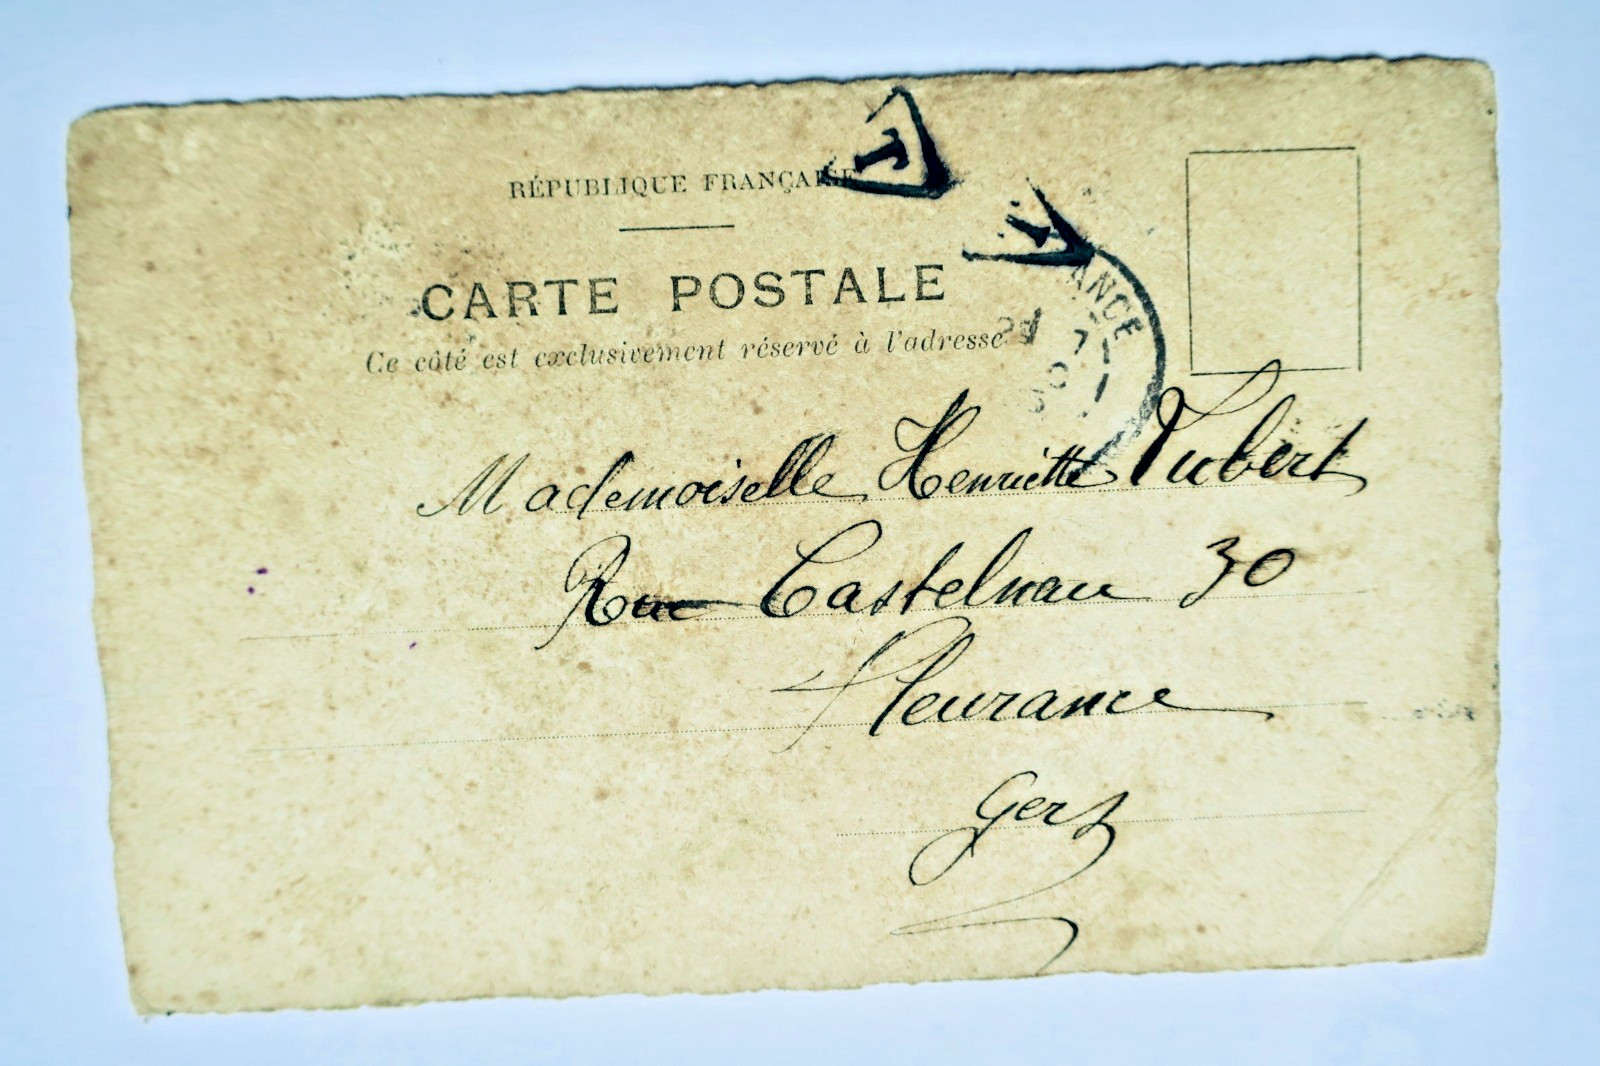 RÉPUBLIQUE FRANÇAISE
T
T
CARTE POSTALE
ANCE
Ce côté est exclusivement réservé à l'adresse
Mademoiselle Henriette
Rue Castelnau 30
Fleurance
Gers